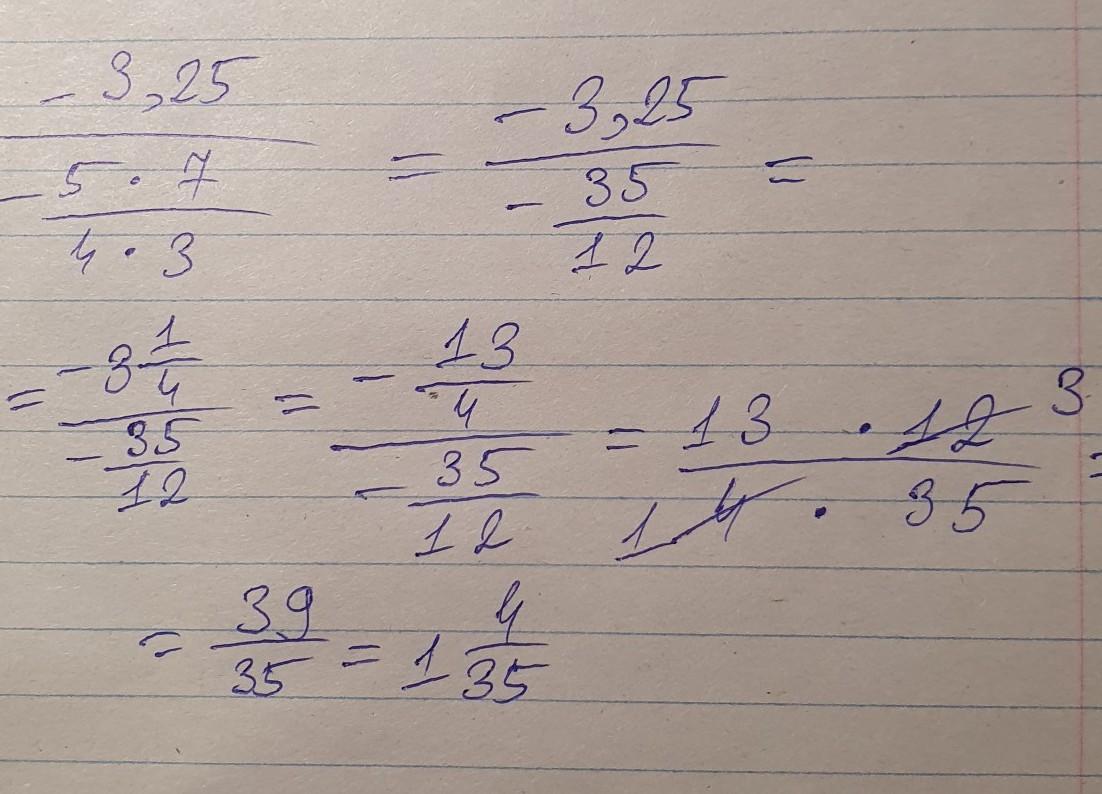 -3,25 / (-(5·7)/(4·3)) = -3,25 / (-35/12) =
= -3 1/4 / (-35/12) = -13/4 / (-35/12) = 13 · 12 3 / 1 4 · 35 =
= 39/35 = 1 4/35